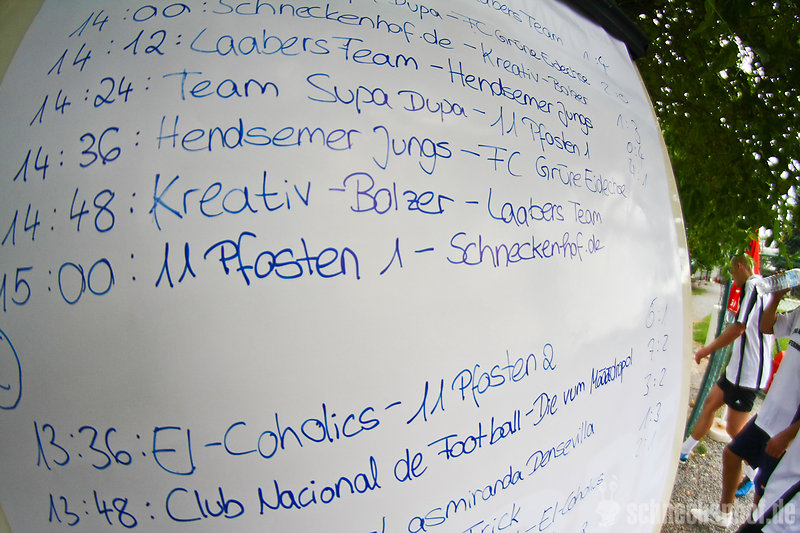 Dupa - FC Grüne Eidechse 1:4
14:00: Schneckenhof.de - Kreativ-Bolzer
14:12: Laabers Team - Hendsemer Jungs 1:3
14:24: Team Supa Dupa - 11 Pfosten 1
14:36: Hendsemer Jungs - FC Grüne Eidechse
14:48: Kreativ-Bolzer - Laabers Team
15:00: 11 Pfosten 1 - Schneckenhof.de
6:1
7:2
3:2
1:3
2:1
13:36: El-Coholics - 11 Pfosten 2
13:48: Club Nacional de Football - Die vum
Lasmiranda Densevilla
Trick
- El-Coholics
schneckenhof.de